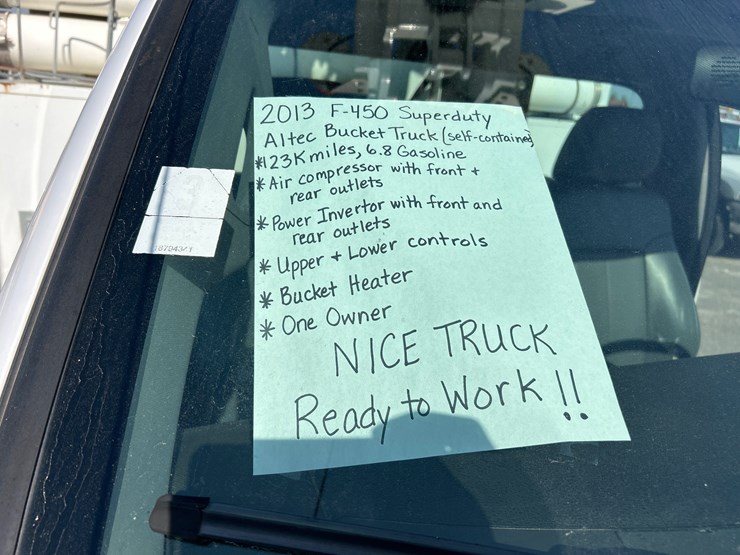 2013 F-450 Superduty
Altec Bucket Truck (self-contained)
*123K miles, 6.8 Gasoline
* Air compressor with front +
rear outlets
* Power Invertor with front and
rear outlets
* Upper + Lower controls
* Bucket Heater
* One Owner
NICE TRUCK
Ready to Work !!